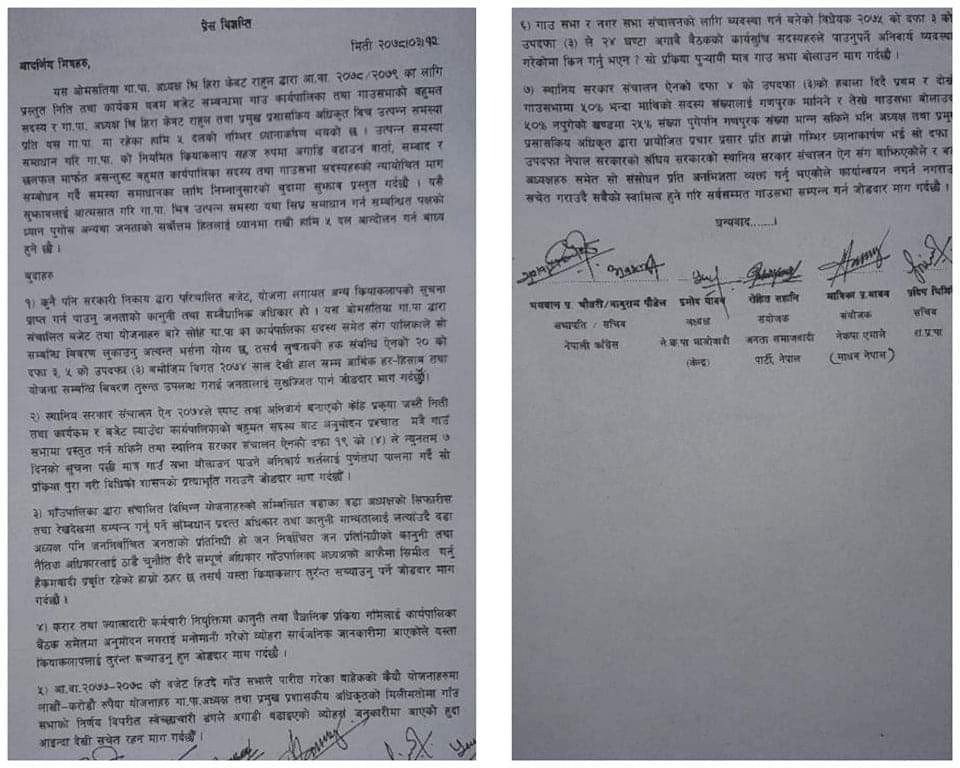 प्रेस विज्ञप्ति
मिती २०७८।०३।१२
आदर्णिय मित्रहरु,
यस ओमसतिया गा.पा. अध्यक्ष श्रि हिरा केवट राहुल द्वारा आ.वा. २०७८/२०७९ का लागि
प्रस्तुत निति तथा कार्यक्रम एवम बजेट सम्बन्धमा गाउ कार्यपालिका तथा गाउसभाको बहुमत
सदस्य र गा.पा. अध्यक्ष श्रि हिरा केवट राहुल तथा प्रमुख प्रशासकिय अधिकृत बिच उत्पन्न समस्या
प्रति यस गा.पा. मा रहेका हामि ५ दलको गम्भिर ध्यानाकर्षण भयको छ । उत्पन्न समस्या
समाधान गरि गा.पा. को नियमित क्रियाकलाप सहज रुपमा अगाडि बढाउन वार्ता, सम्बाद र
छलफल मार्फत असन्तुस्ट बहुमत कार्यपालिका सदस्य तथा गाउसभा सदस्यहरुको न्यायोचित माग
सम्बोधन गर्दै समस्या समाधानका लागि निम्नानुसारको बुदामा सुझाव प्रस्तुत गर्दछौ । यसै
सुझावलाई आत्मसात गरि गा.पा. भित्र उत्पन्न समस्या यथा सिघ्र समाधान गर्न सम्बन्धित पक्षको
ध्यान पुगोस अन्यथा जनताको सर्वोत्तम हितलाई ध्यानमा राखी हामि ५ दल आन्दोलन गर्न बाध्य
हुने छौ ।
बुदाहरु
१) कुनै पनि सरकारी निकाय द्वारा परिचालित बजेट, योजना लगायत अन्य क्रियाकलापको सुचना
प्राप्त गर्न पाउनु जनताको कानुनी तथा सम्बैधानिक अधिकार हो । यस ओमसतिया गा.पा द्वारा
संचालित बजेट तथा योजनाहरु बारे सोहि गा.पा का कार्यपालिका सदस्य समेत संग पालिकाले सो
सम्बन्धि बिवरण लुकाउनु अत्यन्त भर्सना योग्य छ, तसर्थ सुचनाको हक संबन्धि ऐनको २० को
दफा ३, ५ को उपदफा (३) बमोजिम बिगत २०७४ साल देखी हाल सम्म आर्थिक हर-हिसाब तथा
योजना सम्बन्धि बिवरण तुरुन्त उपलब्ध गराई जनतालाई सुसूचित पार्न जोडदार माग गर्दछौ।
२) स्थानिय सरकार संचालन ऐन २०७४ले स्पष्ट तथा अनिवार्य बनाएको केहि प्रक्रया जस्तै निती
तथा कार्यक्रम र बजेट ल्याउँदा कार्यपालिकाको बहुमत सदस्य बाट अनुमोदन प्रश्चात मात्रै गाउँ
सभामा प्रस्तुत गर्न सकिने तथा स्थानिय सरकार संचालन ऐनको दफा १९ को (४) ले न्युनतम ७
दिनको सुचना पछी मात्र गाउँ सभा बोलाउन पाउने अनिबार्य शर्तलाई पुर्णतया पालमा गर्दै सो
प्रक्रिया पुरा गरी बिधिको शासनको प्रत्याभूति गराउने जोडदार माग गर्दछौं ।
३) गाँउपालिका द्वारा संचालित बिभिन्न योजनाहरुको सम्बिन्धित वडाका वडा अध्यक्षको सिफारीस
तथा रेखदेखमा सम्पन्न गर्नु पर्ने संम्बिधान प्रदत्त अधिकार तथा कानुनी मान्यतालाई लत्याउँदै वडा
अध्यक्ष पनि जननिर्वाचित जनताको प्रतिनिधी हो जन निर्वाचित जन प्रतिनिधीको कानुनी तथा
नैतिक अधिकारलाई ठाडै चुनौति दीदै सम्पूर्ण अधिकार गाँउपालिका अध्यक्षको आफैमा सिमीत गर्नु
हैकमवादी प्रबृति रहेको हाम्रो ठहर छ तसर्थ यस्ता क्रियाकलाप तुरंन्त सच्याउनु पर्ने जोडदार माग
गर्दछौ ।
४) करार तथा ज्यालादारी कर्मचारी नियुक्तिमा कानुनी तथा बैज्ञानिक प्रक्रिया नमिलाई कार्यपालिका
बैठक समेतमा अनुमोदन नगराई मनोमानी गरेको व्योहरा सार्वजनिक जानकारीमा आएकोले यस्ता
क्रियाकलापलाई तुरंन्त सच्याउनु हुन जोडदार माग गर्दछौ ।
५) आ.वा.२०७७-२०७८ को बजेट हिउदे गाउँ सभाले पारीत गरेका बाहेकको कैयौ योजनाहरुमा
लाखौं-करोडौ रुपैया योजनाहरु गा.पा.अध्यक्ष तथा प्रमुख प्रशासकीय अधिकृतको मिलीमतोमा गाउँ
सभाको निर्णय विपरीत स्वेच्छाचारी ढंगले अगाडी बढाइएको व्योहरा जानकारीमा आएको हुदा
आइन्दा देखी सचेत रहन माग गर्दछौँ ।
६) गाउ सभा र नगर सभा संचालनको लागि ब्यवस्था गर्न बनेको बिधेयक २०७५ को दफा ३ को
उपदफा (३) ले २४ घण्टा अगावै बैठकको कार्यसुचि सदस्यहरुले पाउनुपर्ने अनिबार्य ब्यवस्था
गरेकोमा किन गर्नु भएन ? सो प्रक्रिया पुर्‍यायी मात्र गाउ सभा बोलाउन माग गर्दछौ ।
७) स्थानिय सरकार संचालन ऐनको दफा ४ को उपदफा (३)को हवाला दिदै प्रथम र दोस्रो
गाउसभामा ५०% भन्दा माथिको सदस्य संख्यालाई गणपुरक मानिने र तेस्रो गाउसभा बोलाउदा
५०% नपुगेको खण्डमा २५% संख्या पुगेपनि गणपुरक संख्या मान्न सकिने भनि अध्यक्ष तथा प्रमुख
प्रसासकिय अधिकृत द्वारा प्रायोजित प्रचार प्रसार प्रति हाम्रो गम्भिर ध्यानाकार्षण भई सो दफा
उपदफा नेपाल सरकारको संघिय सरकारको स्थानिय सरकार संचालन ऐन संग बाझिएकोले र वडा
अध्यक्षहरु समेत सो संसोधन प्रति अनभिज्ञता व्यक्त गर्नु भएकोले कार्यान्वयन नगर्न नगराउन
सचेत गराउदै सबैको स्वामित्व हुने गरि सर्वसम्मत गाउसभा सम्पन्न गर्न जोडदार माग गर्दछौ ।
धन्यवाद.......।
भगवान प्र. चौधरी/बाबुराम पौडेल प्रमोद यादव रोहित सहानि मात्रिका प्र.यादव प्रदिप घिमिरे
सभापति / सचिव अध्यक्ष संयोजक संयोजक सचिव
नेपाली काँग्रेस ने.क.पा माओबादी जनता समाजवादी नेकपा एमाले रा.प्र.पा
(केन्द्र) पार्टी, नेपाल (माधव नेपाल)